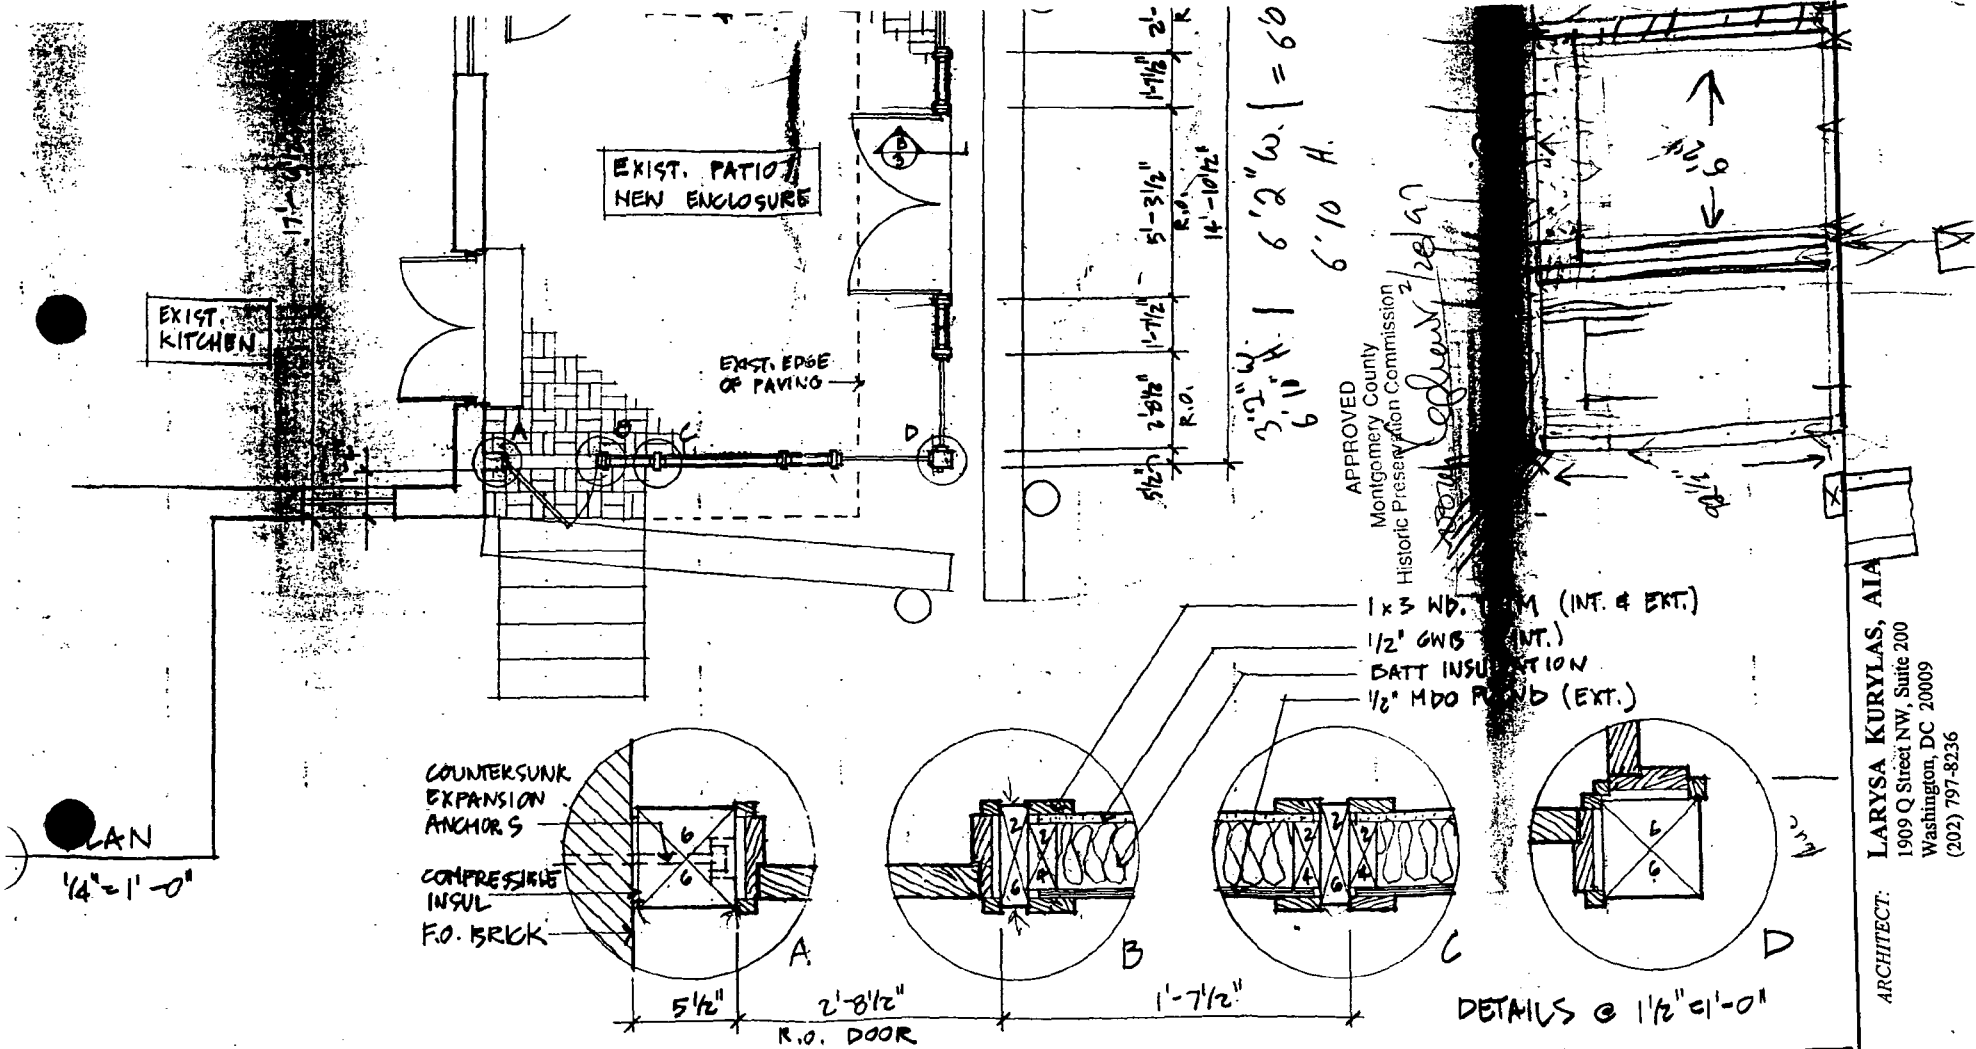 17'-
EXIST. PATIO
NEW ENCLOSURE
B
3
EXIST.
KITCHEN
EXIST. EDGE
OF PAVING
A
B
C
D
2'-
R
1'-7 1/2"
5'-3 1/2"
R.O.
14'-10 1/2"
1'-7 1/2"
2'-8 1/2"
R.O.
5 1/2"
6'2" W. | = 60
6'10 H.
3'2" W. |
6'11" H.
APPROVED
Montgomery County
Historic Preservation Commission
2/28/97
6'
1 x 3 WD. TRIM (INT. & EXT.)
1/2" GWB (INT.)
BATT INSULATION
1/2" MDO PLWD (EXT.)
COUNTERSUNK
EXPANSION
ANCHORS
COMPRESSIBLE
INSUL
F.O. BRICK
6
6
A
2
2
6
4
B
2
2
2
4
6
4
C
6
6
D
5 1/2"
2'-8 1/2"
R.O. DOOR
1'-7 1/2"
DETAILS @ 1 1/2" = 1'-0"
PLAN
1/4" = 1'-0"
ARCHITECT:
LARYSA KURYLAS, AIA
1909 Q Street NW, Suite 200
Washington, DC 20009
(202) 797-8236